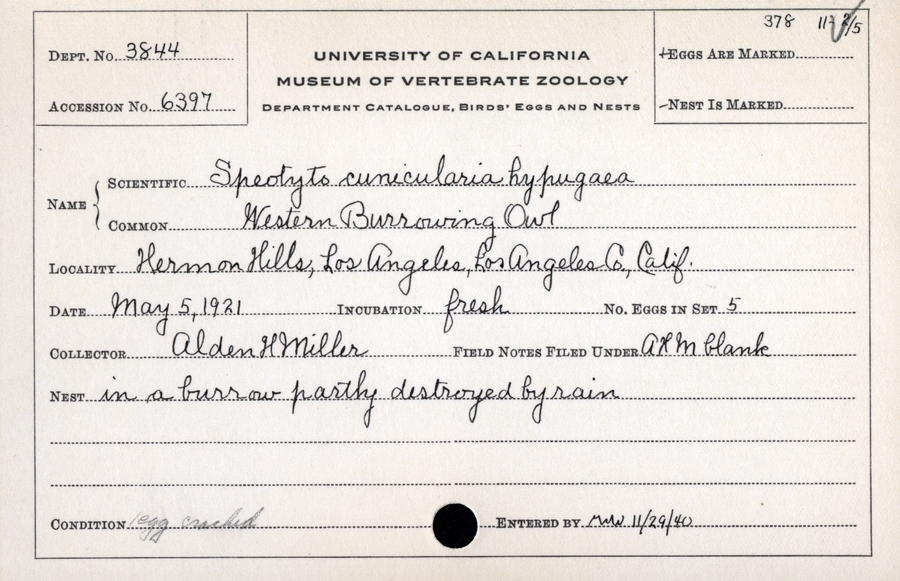 378 11-2/5
DEPT. No. 3844
UNIVERSITY OF CALIFORNIA
+EGGS ARE MARKED
MUSEUM OF VERTEBRATE ZOOLOGY
ACCESSION No. 6397
DEPARTMENT CATALOGUE, BIRDS' EGGS AND NESTS
-NEST IS MARKED
NAME { SCIENTIFIC Speotyto cunicularia hypugaea
COMMON Western Burrowing Owl
LOCALITY Hermon Hills, Los Angeles, Los Angeles Co., Calif.
DATE May 5, 1921 INCUBATION fresh No. EGGS IN SET 5
COLLECTOR Alden H Miller FIELD NOTES FILED UNDER AHM blank
NEST in a burrow partly destroyed by rain
CONDITION 1 egg cracked ENTERED BY 11/29/40